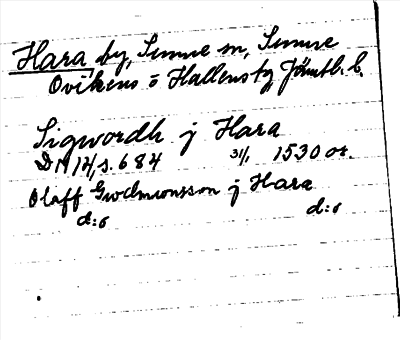 Hara by, Sunne sn, Sunne
Ovikens o Hallens tg, Jämtl. l.
Sigwordh j Hara
DN 14, s. 684 31/1 1530 or.
Olaff Gudmwnsson j Hara
d:o d:o